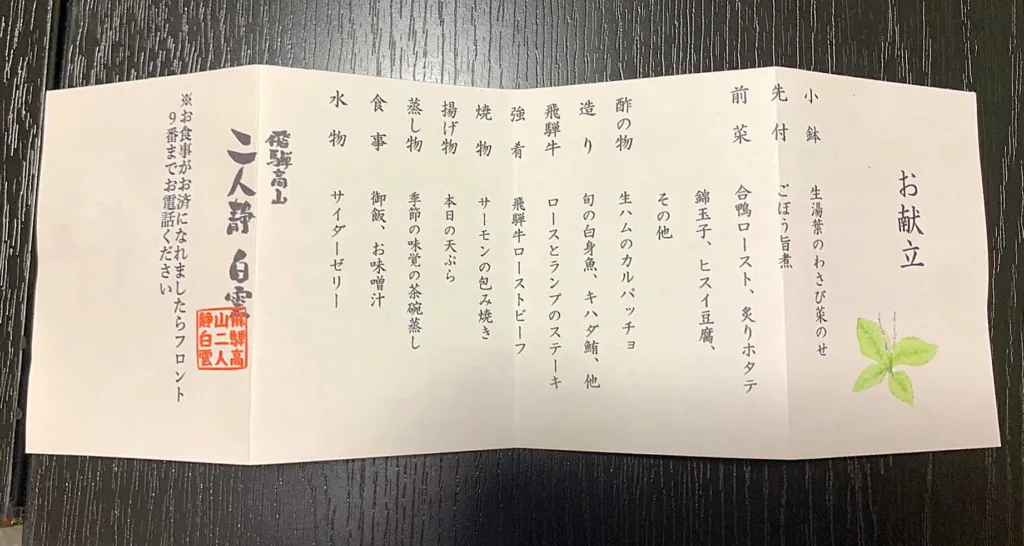 お献立
小鉢　生湯葉のわさび菜のせ
先付　ごぼう旨煮
前菜　合鴨ロースト、炙りホタテ
錦玉子、ヒスイ豆腐、
その他
酢の物　生ハムのカルパッチョ
造り　旬の白身魚、キハダ鮪、他
飛騨牛　ロースとランプのステーキ
強肴　飛騨牛ローストビーフ
焼物　サーモンの包み焼き
揚げ物　本日の天ぷら
蒸し物　季節の味覚の茶碗蒸し
食事　御飯、お味噌汁
水物　サイダーゼリー
飛騨高山
二人静 白雲
飛騨高
山二人
静白雲
※お食事がお済になれましたらフロント
9番までお電話ください